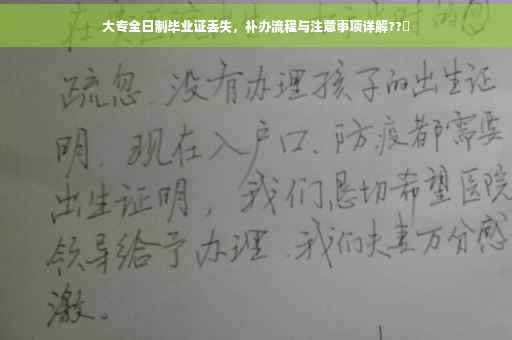 大专全日制毕业证丢失，补办流程与注意事项详解??▯
疏忽.没有办理孩子的出生证
明.现在入户口、防疫都需要
出生证明，我们恳切希望医院
领导给予办理.我们夫妻万分感
激。